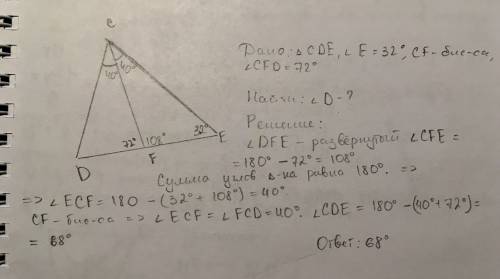 C
40° 40°
72° 108° 32°
D F E
Дано: △CDE, ∠E = 32°, CF-бис-са,
∠CFD = 72°
Найти: ∠D-?
Решение:
∠DFE - развёрнутый ∠CFE =
= 180° - 72° = 108°
Сумма углов △-ка равна 180°. =>
=> ∠ECF = 180 - (32° + 108°) = 40°.
CF-бис-са => ∠ECF = ∠FCD = 40°. ∠CDE = 180° - (40° + 72°) =
= 68°
Ответ: 68°